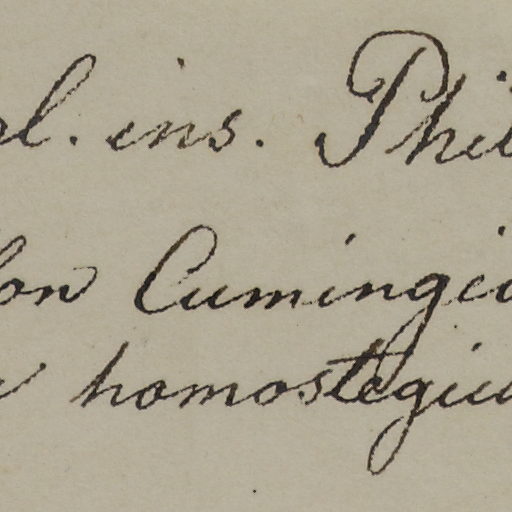 l. ins. Phil
lon Cumingia
homostegiu